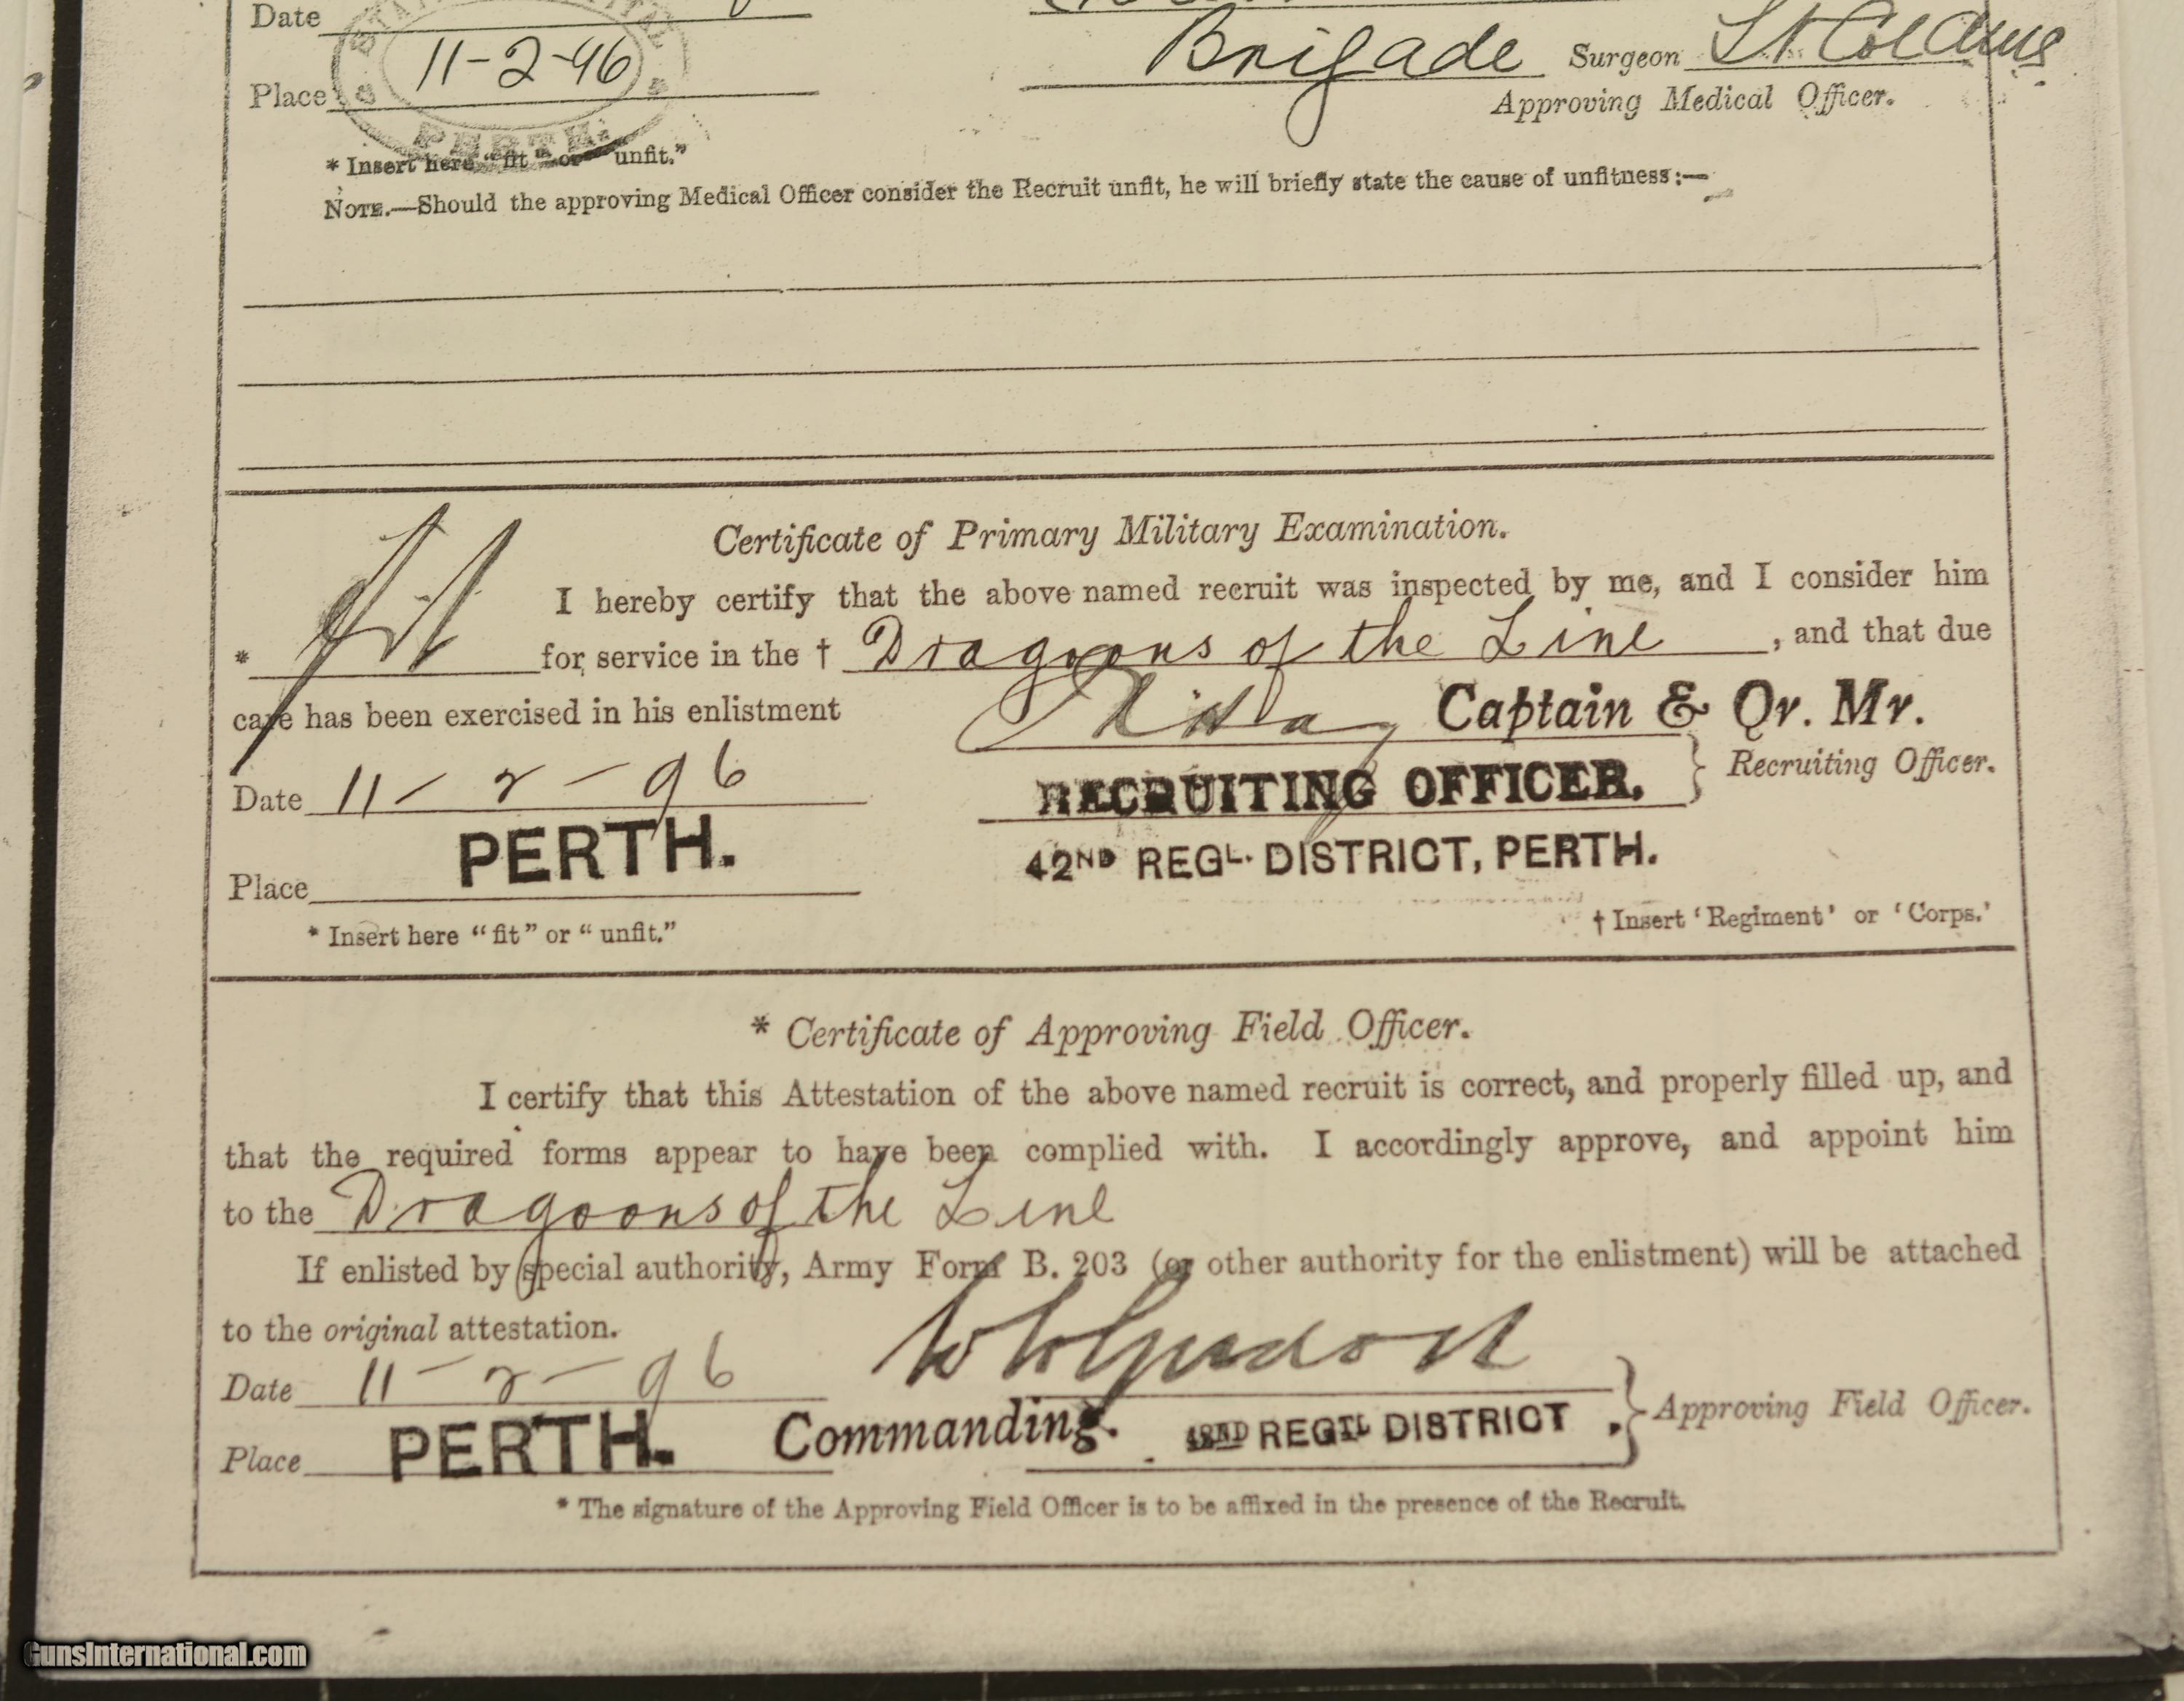 Date
11-2-96
Brigade Surgeon Lt Col
Place
PERTH.
Approving Medical Officer.
* Insert here "fit" or "unfit."
NOTE.—Should the approving Medical Officer consider the Recruit unfit, he will briefly state the cause of unfitness:—
Certificate of Primary Military Examination.
I hereby certify that the above named recruit was inspected by me, and I consider him
* fit for service in the † Dragoons of the Line, and that due
care has been exercised in his enlistment
Captain & Qr. Mr.
Date 11-2-96
RECRUITING OFFICER.
} Recruiting Officer.
Place PERTH.
42ND REGL. DISTRICT, PERTH.
* Insert here "fit" or "unfit."
† Insert 'Regiment' or 'Corps.'
* Certificate of Approving Field Officer.
I certify that this Attestation of the above named recruit is correct, and properly filled up, and
that the required forms appear to have been complied with. I accordingly approve, and appoint him
to the Dragoons of the Line
If enlisted by special authority, Army Form B. 203 (or other authority for the enlistment) will be attached
to the original attestation.
Date 11-2-96
Place PERTH. Commanding. 42ND REGTL DISTRICT. } Approving Field Officer.
* The signature of the Approving Field Officer is to be affixed in the presence of the Recruit.
GunsInternational.com